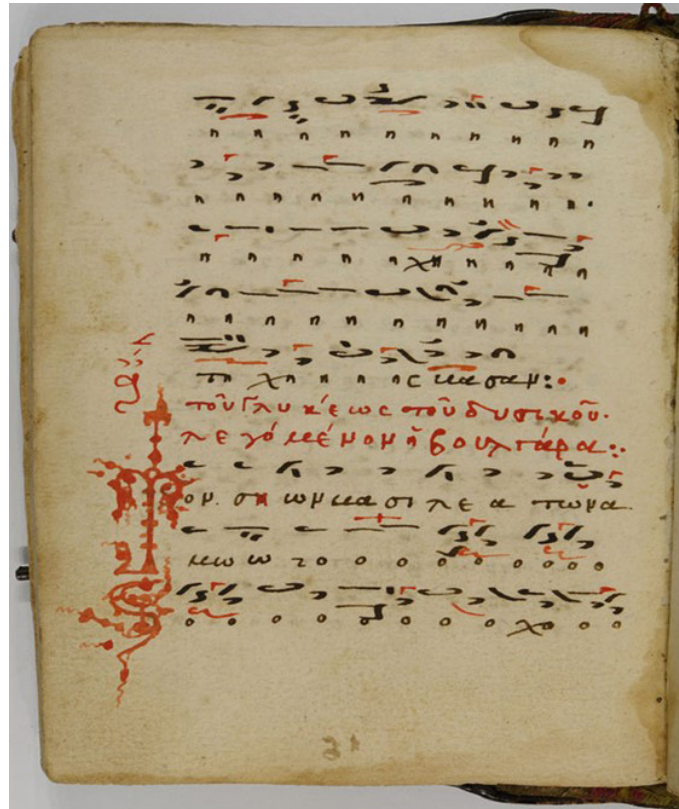 η η η η η η η η η η
η η η η η η η η η η η.
η η η η η χη η η η η
η η η η η η η η η η
τη χη η η η ς μασαν:·
τοῦ Γλυκέως τοῦ δυσικοῦ.
λεγόμένον ἡ βουλγάρα:·
Τον. ση ων μα σι λε α τω να
μω ω χο ο ο ο ο ο ο ο ο ο ο
ο ο ο ο ο ο ο ο χο ο ο